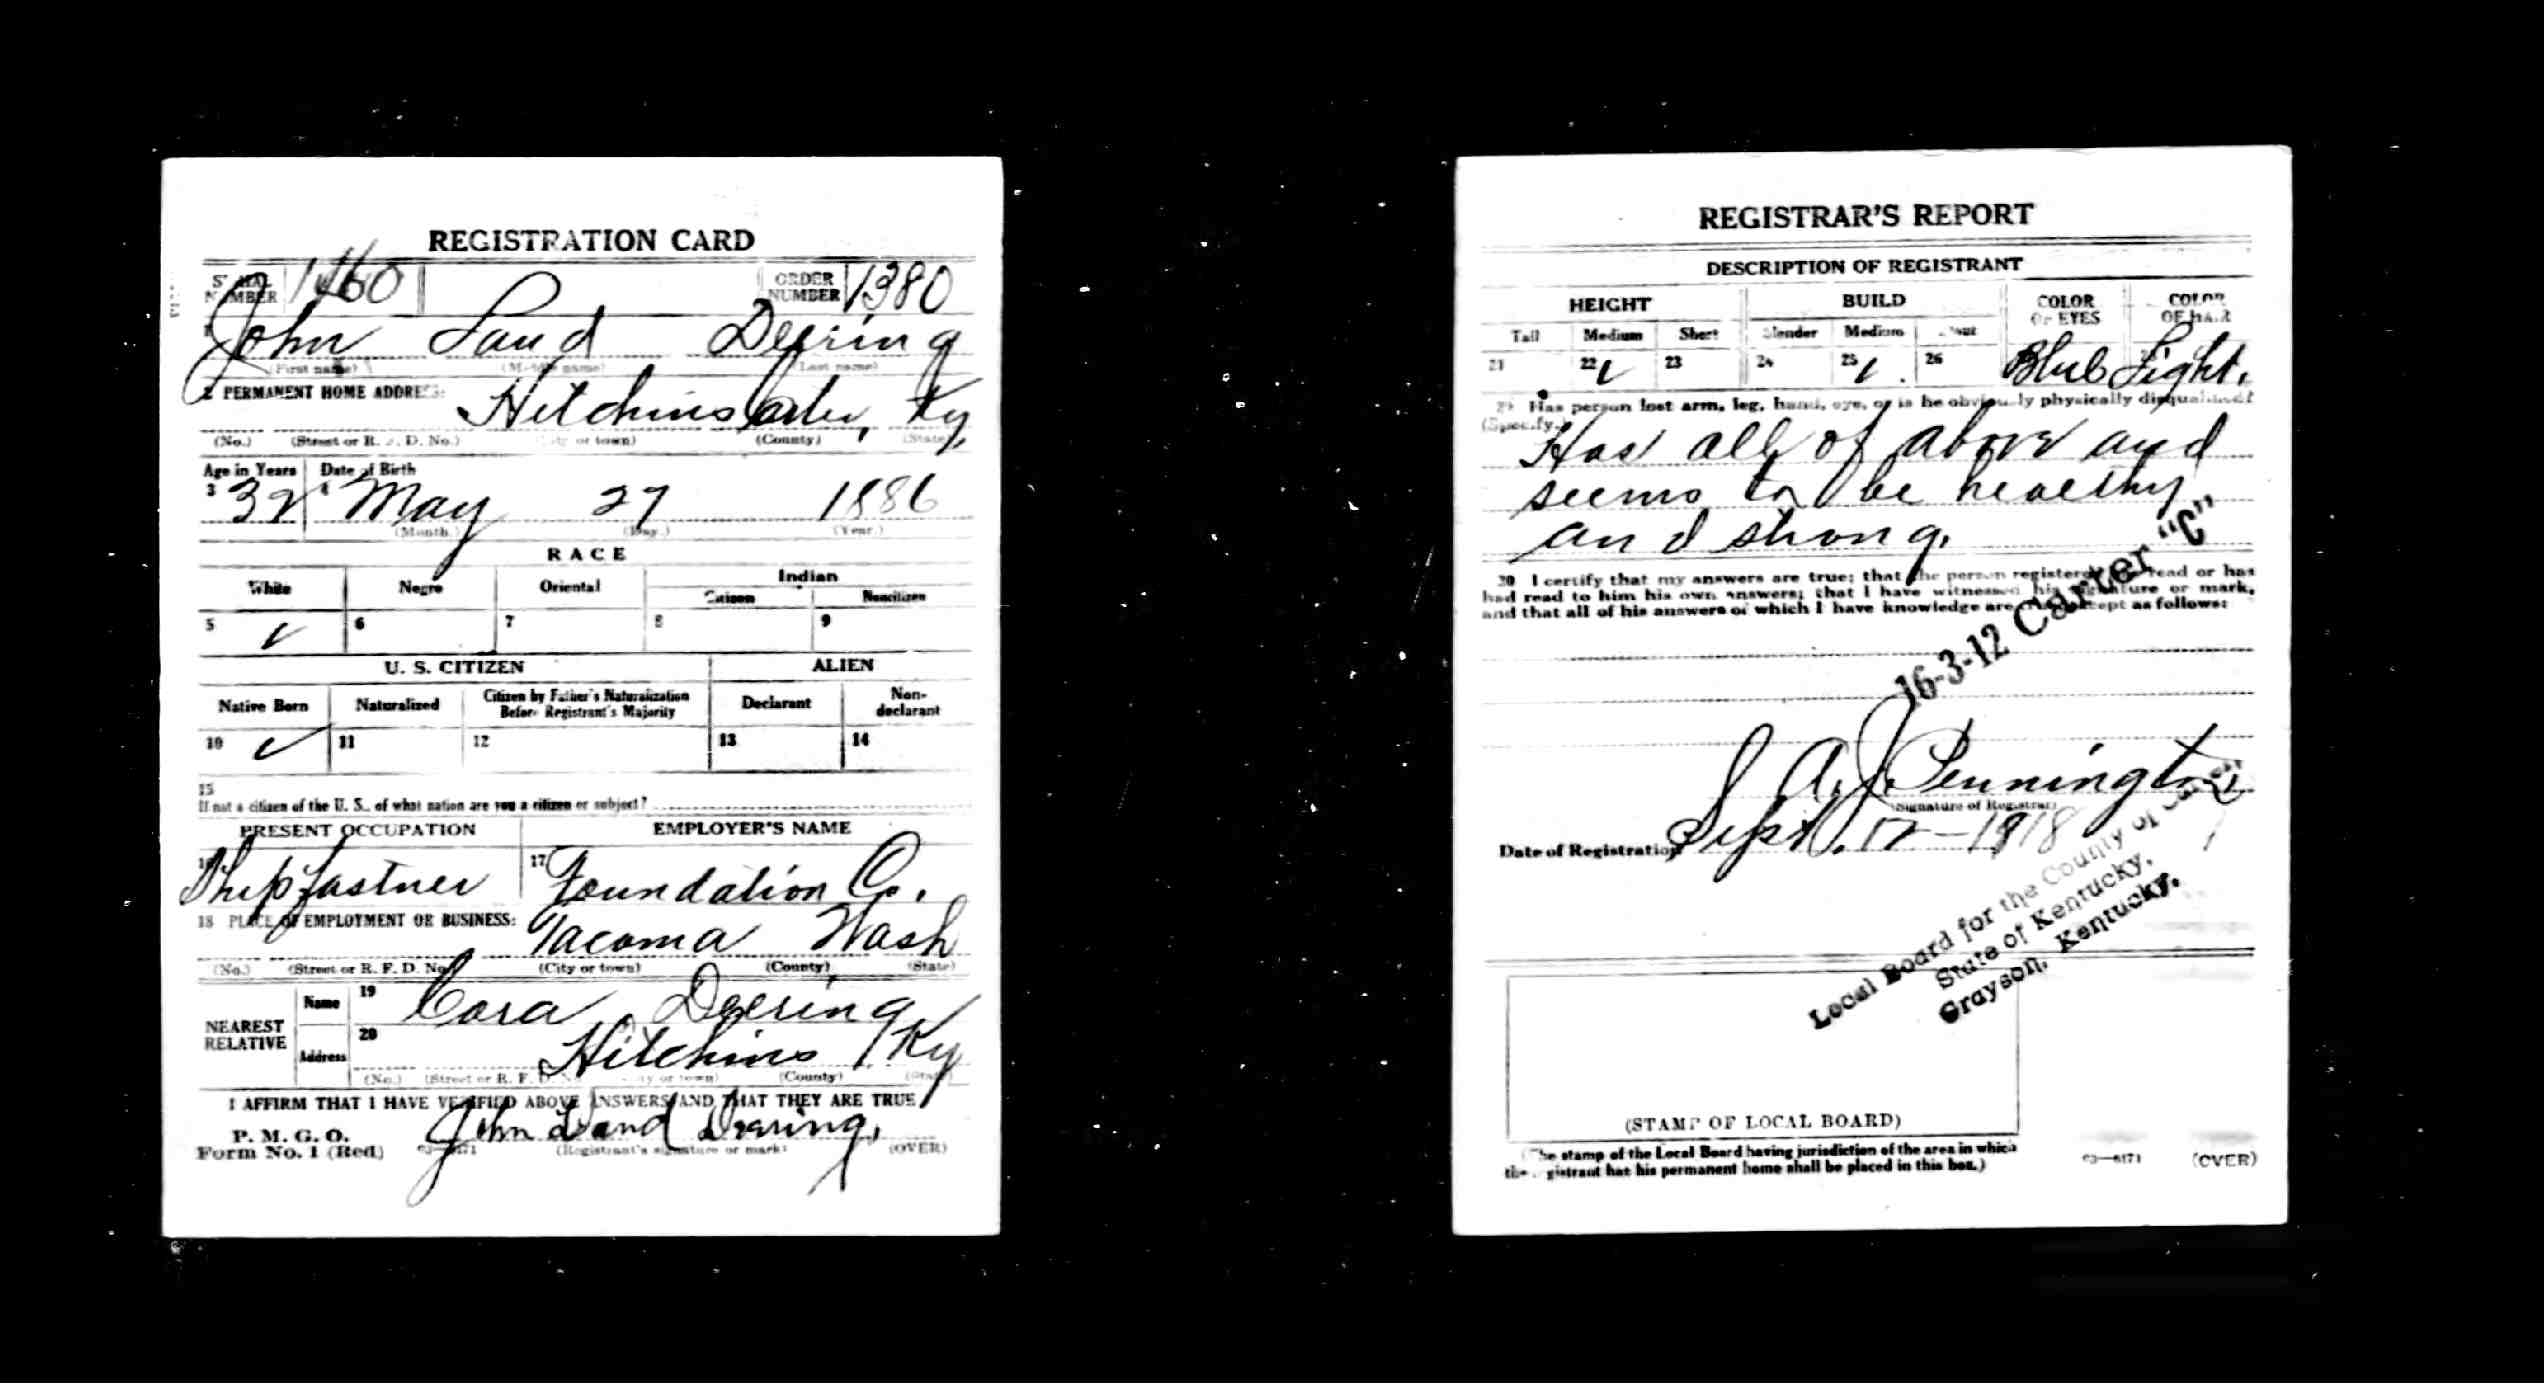 REGISTRATION CARD
SERIAL NUMBER 1460 ORDER NUMBER 1380
John Land Deering
(First name) (Middle name) (Last name)
2 PERMANENT HOME ADDRESS:
Hitchins Carter, Ky,
(No.) (Street or R. F. D. No.) (City or town) (County) (State)
Age in Years Date of Birth
3 32 4 May 27 1886
(Month.) (Day.) (Year.)
RACE
White Negro Oriental Indian
Citizen Noncitizen
5 ✓ 6 7 8 9
U. S. CITIZEN ALIEN
Native Born Naturalized Citizen by Father's Naturalization Before Registrant's Majority Declarant Non-declarant
10 ✓ 11 12 13 14
15
If not a citizen of the U. S., of what nation are you a citizen or subject?
PRESENT OCCUPATION EMPLOYER'S NAME
16 Shipfastner 17 Foundation Co.
18 PLACE OF EMPLOYMENT OR BUSINESS:
Tacoma Wash
(No.) (Street or R. F. D. No.) (City or town) (County) (State)
NEAREST RELATIVE
Name 19 Cora Deering
Address 20 Hitchins Ky
(No.) (Street or R. F. D. No.) (City or town) (County) (State)
I AFFIRM THAT I HAVE VERIFIED ABOVE ANSWERS AND THAT THEY ARE TRUE
P. M. G. O.
Form No. 1 (Red) John Land Deering,
(Registrant's signature or mark) (OVER)
REGISTRAR'S REPORT
DESCRIPTION OF REGISTRANT
HEIGHT BUILD COLOR OF EYES COLOR OF HAIR
Tall Medium Short Slender Medium Stout
21 22 ✓ 23 24 25 ✓ 26 Blue Light.
29 Has person lost arm, leg, hand, eye, or is he obviously physically disqualified?
(Specify.)
Has all of above and
seems to be healthy
and strong.
30 I certify that my answers are true; that the person registered has read or has
had read to him his own answers; that I have witnessed his signature or mark,
and that all of his answers of which I have knowledge are true, except as follows:
16-3-12 Carter "C"
S. A. J. Pennington
(Signature of Registrar)
Date of Registration Sept. 12-1918
Local Board for the County of Carter
State of Kentucky,
Grayson, Kentucky.
(STAMP OF LOCAL BOARD)
(The stamp of the Local Board having jurisdiction of the area in which
the registrant has his permanent home shall be placed in this box.)
03—6171 (OVER)